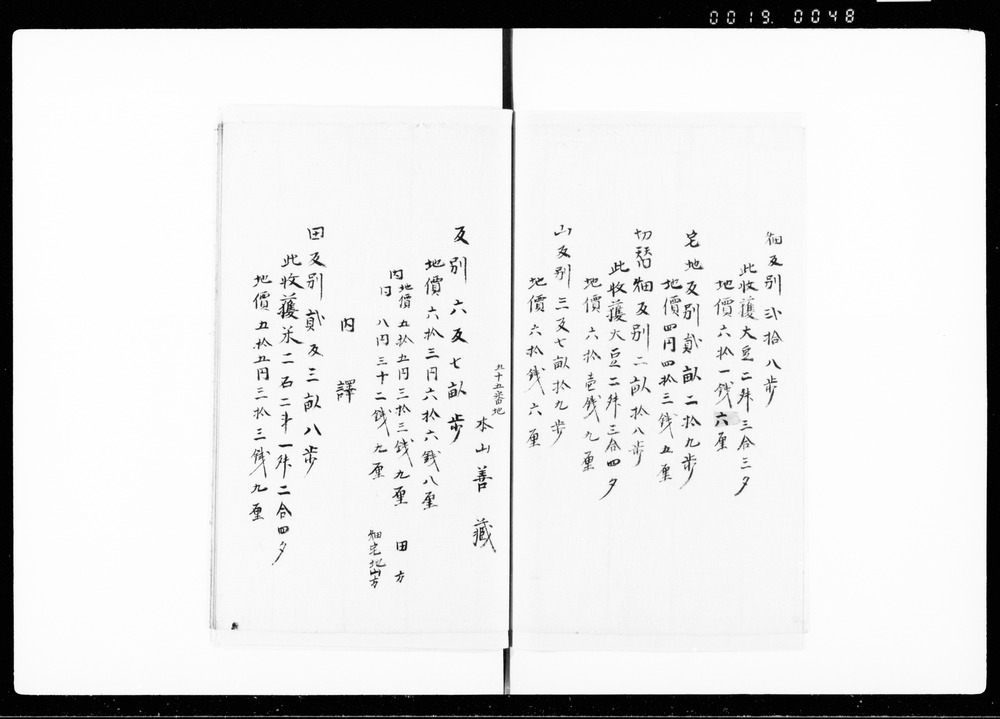 0019. 0048
畑反別弐拾八歩
此收獲大豆二舛三合三夕
地價六拾一銭六厘
宅地反別貳畝二拾九歩
地價四円四拾三銭五厘
切替畑反別二畝拾八歩
此收獲大豆二舛三合四夕
地價六拾壱銭九厘
山反別三反七畝拾九歩
地價六拾銭六厘
九十五番地
本山善藏
反別六反七畝歩
地價六拾三円六拾六銭八厘
内地價五拾五円三拾三銭九厘 田方
内同八円三十二銭九厘 畑宅地山方
内譯
田反別貳反三畝八歩
此收獲米二石二斗一舛二合四夕
地價五拾五円三拾三銭九厘